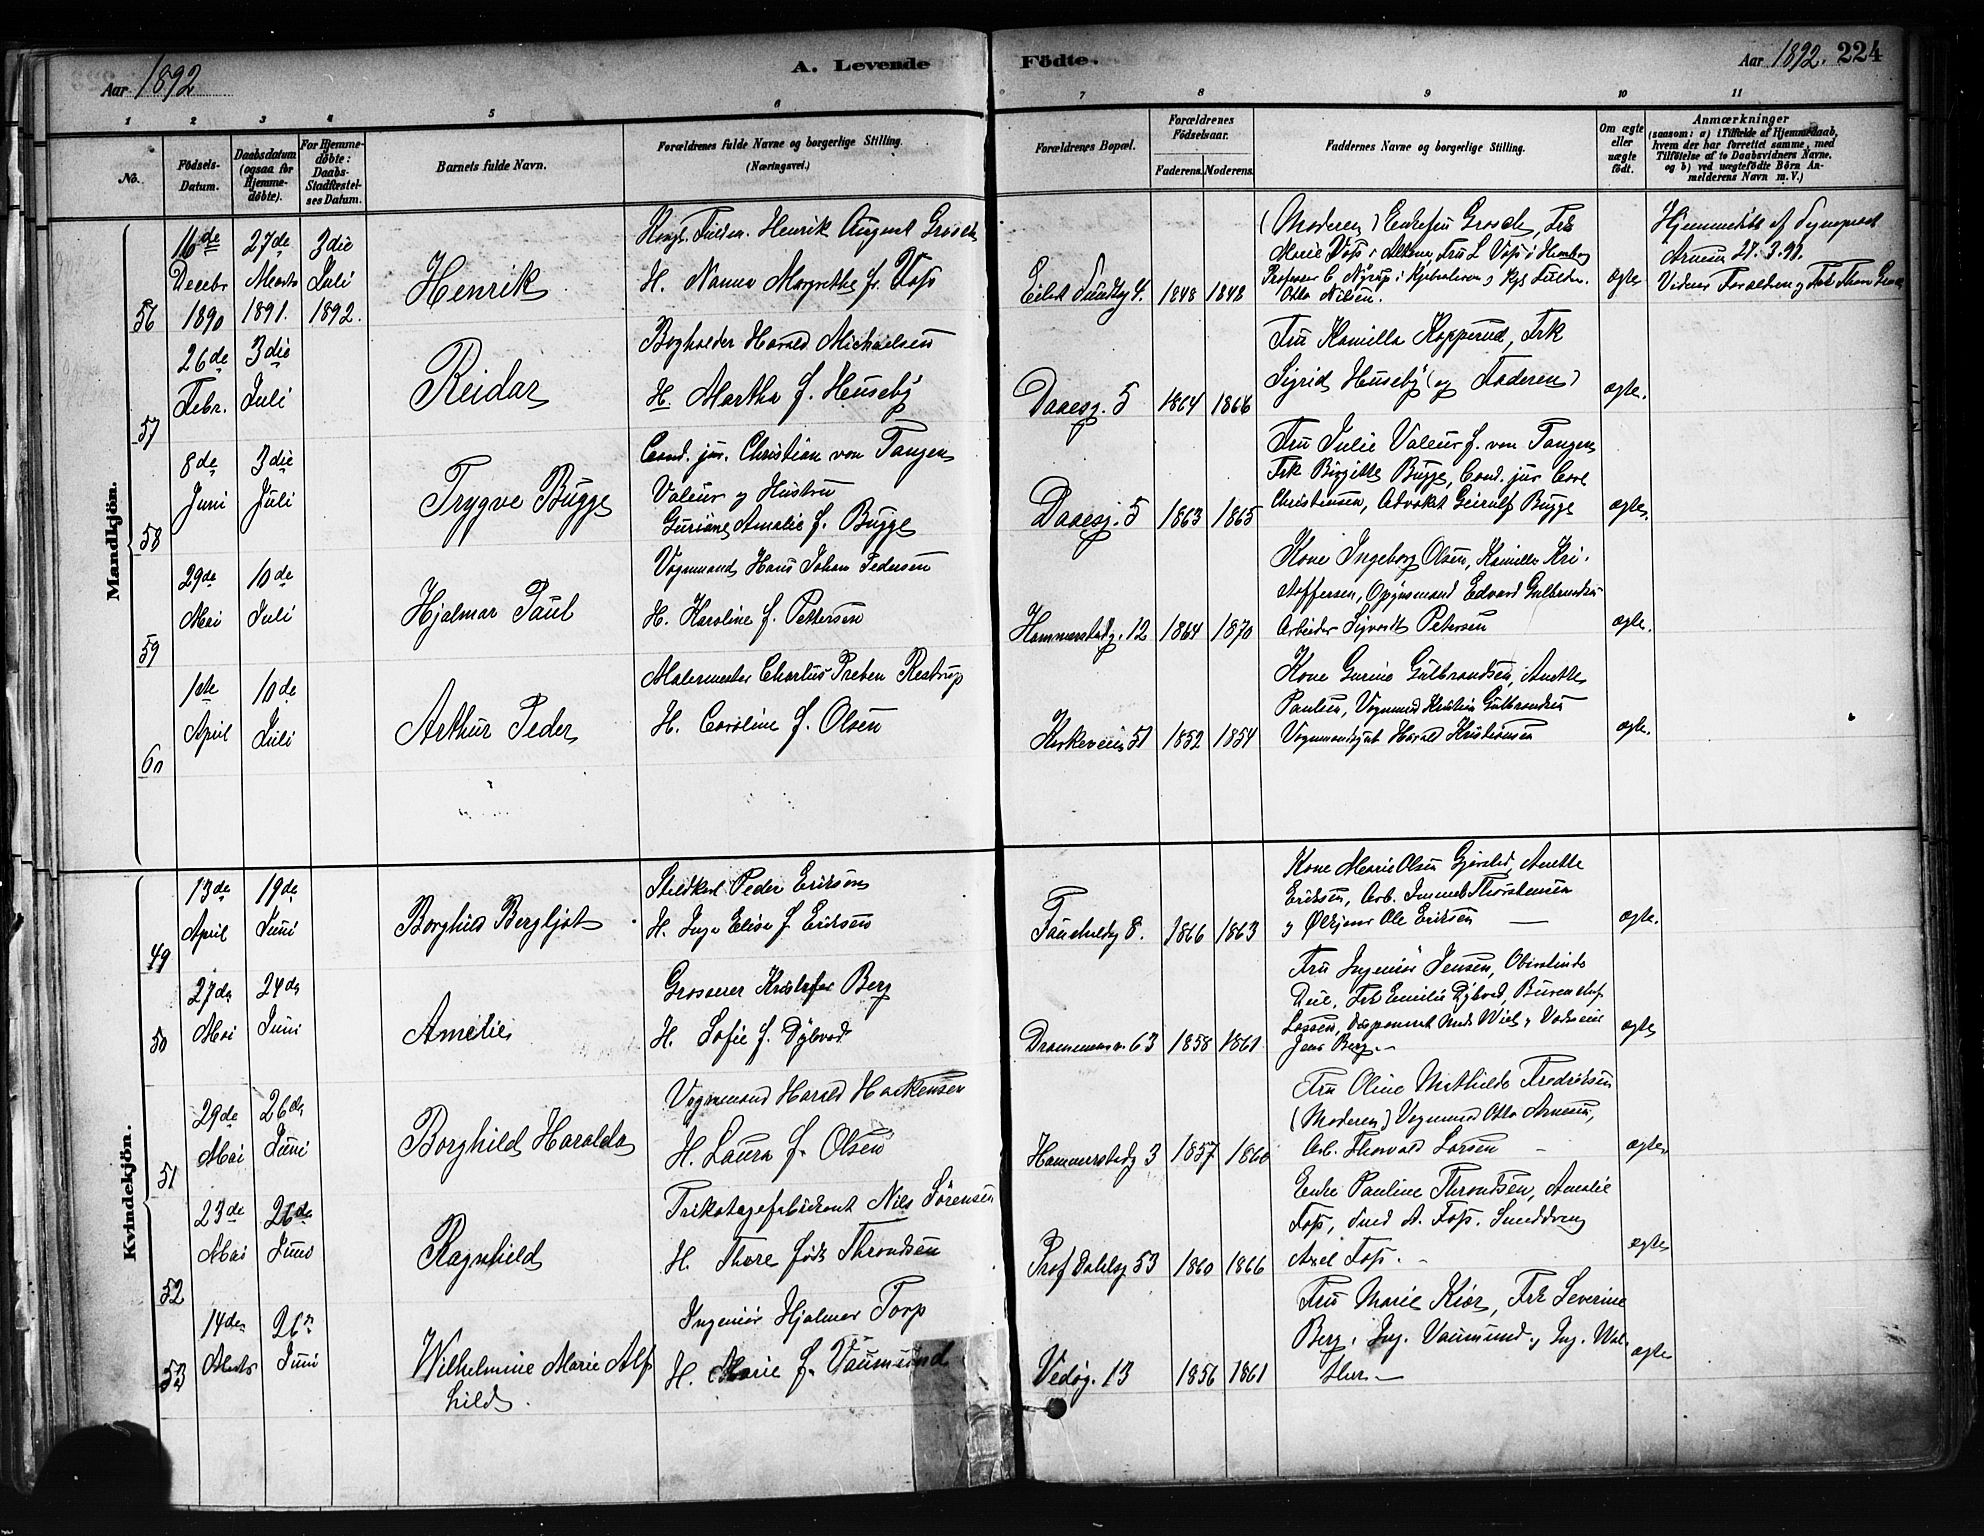 Aar 1892
A. Levende Födte.
Aar 1892. 224
1 2 3 4 5 6 7 8 9 10 11
No.
Födsels-Datum.
Daabsdatum (ogsaa for Hjemmedöbte).
For Hjemmedöbte: Daabs-Stadfæstelses Datum.
Barnets fulde Navn.
Forældrenes fulde Navne og borgerlige Stilling. (Næringsvei.)
Forældrenes Bopæl.
Forældrenes Födselsaar.
Faderens. Moderens.
Faddernes Navne og borgerlige Stilling.
Om ægte eller uægte födt.
Anmærkninger
(saasom: a) i Tilfælde af Hjemmedaab, hvem der har forrettet samme, med Tilföielse af to Daabsvidners Navne, og b) ved uægtefödte Börn Anmelderens Navn m. V.)
Mandkjön.
56
16de Decebr 1890
27de Marts 1891.
3die Juli 1892.
Henrik
Henrik August Grosch
H. Nanna Margrethe f. Voss
Eilert Sundtsg 4.
1848 1848
(Moderen) Enkefru Grosch, Frk
Marie Voss i Altona, Fru L Voss i
Professor C. Nyrup i
Otto Nilsen.
ægte
Hjemmedöbt af
27.3.91.
57
26de Febr.
3die Juli
Reidar
Bogholder Harald Michaelsen
H. Martha f. Huseby
Daaesg. 5
1864 1866
Fru Kamilla Kopperud, Frk
Sigrid Huseby (og Faderen)
ægte.
58
8de Juni
3die Juli
Trygve Bugge
Cand. jur. Christian von Tangen
Valeur og Hustru
Guriane Amalie f. Bugge
Daaesg. 5
1863 1865
Fru Julie Valeur f. von Tangen
Frk Birgitte Bugge, Cand. jur Carl
Christensen, Advokat Geirulf Bugge
ægte.
59
29de Mai
10de Juli
Hjalmar Paul
Vognmand Hans Johan Pedersen
H. Karoline f. Pettersen
Hammerstadg. 12
1864 1870
Kone Ingeborg Olsen, Kamilla Kri-
stoffersen, Opsynsmand Edvard Gulbrandsen
Arbeider Sigvardt Petersen
ægte.
60
1ste April
10de Juli
Arthur Peder
Malermester Charles Preben Restrup
H. Caroline f. Olsen
Kirkeveien 51
1852 1854
Kone Gurine Gulbrandsen, Anette
Paulsen, Vognmand Kristian Gulbrandsen
Harald Kristiansen
ægte.
Kvindekjön.
49
13de April
19de Juni
Borghild Bergljot
Staldkarl Peder Eriksen
H. Inga Elise f. Eriksen
8.
1866 1863
Kone Marie Olsen Gjersted, Anette
Eriksen, Arb. Thorstensen
og Ole Eriksen —
ægte.
50
27de Mai
24de Juni
Amelie
Grosserer Kristofer Berg
H. Sofie f. Dybvad
Drammensv. 63
1858 1861
Fru Ingeniör Jensen,
Frk Emilie Dybvad,
Jens Berg.—
ægte
51
29de Mai
26de Juni
Borghild Haralda
Vognmand Harald Haakensen
H. Laura f. Olsen
Hammerstadg 3
1857 1860
Fru Oline Mathilde Fredriksen
(Moderen) Vognmand Otto Arnesen,
Arb. Thorvald Larsen —
ægte.
52
23de Mai
26de Juni
Ragnhild
Trikotagefabrikant Nils Sörensen
H. Thora född Throndsen
Prof Dahlsg 53
1860 1866
Enke Pauline Throndsen, Amalie
Foss, A. Foss.
Axel Foss. —
ægte
53
14de Marts
26de Juni
Wilhelmine Marie Alf-
hild.
Ingeniör Hjalmar Torp
H. Marie f. Vaumund
Vedög. 13
1856 1861
Fru Marie Kiær, Frk Severine
Berg, Ing. Vaumund og Ing.
ægte